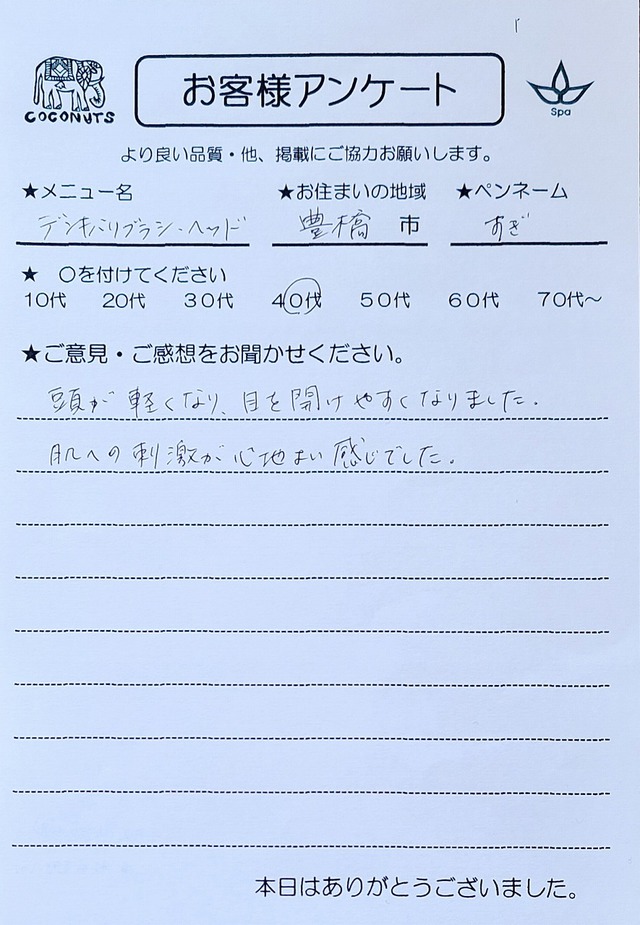 COCONUTS
お客様アンケート
Spa
より良い品質・他、掲載にご協力お願いします。
★メニュー名 ★お住まいの地域 ★ペンネーム
デンキバリブラシ・ヘッド 豊橋 市 すぎ
★ 〇を付けてください
10代 20代 30代 40代 50代 60代 70代～
★ご意見・ご感想をお聞かせください。
頭が軽くなり、目を開けやすくなりました。
肌への刺激が心地よい感じでした。
本日はありがとうございました。